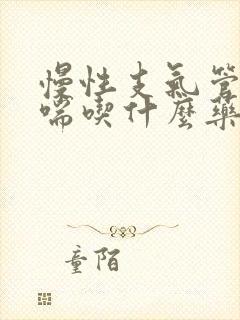 慢性支氣管
喘喫什麼藥
童陌